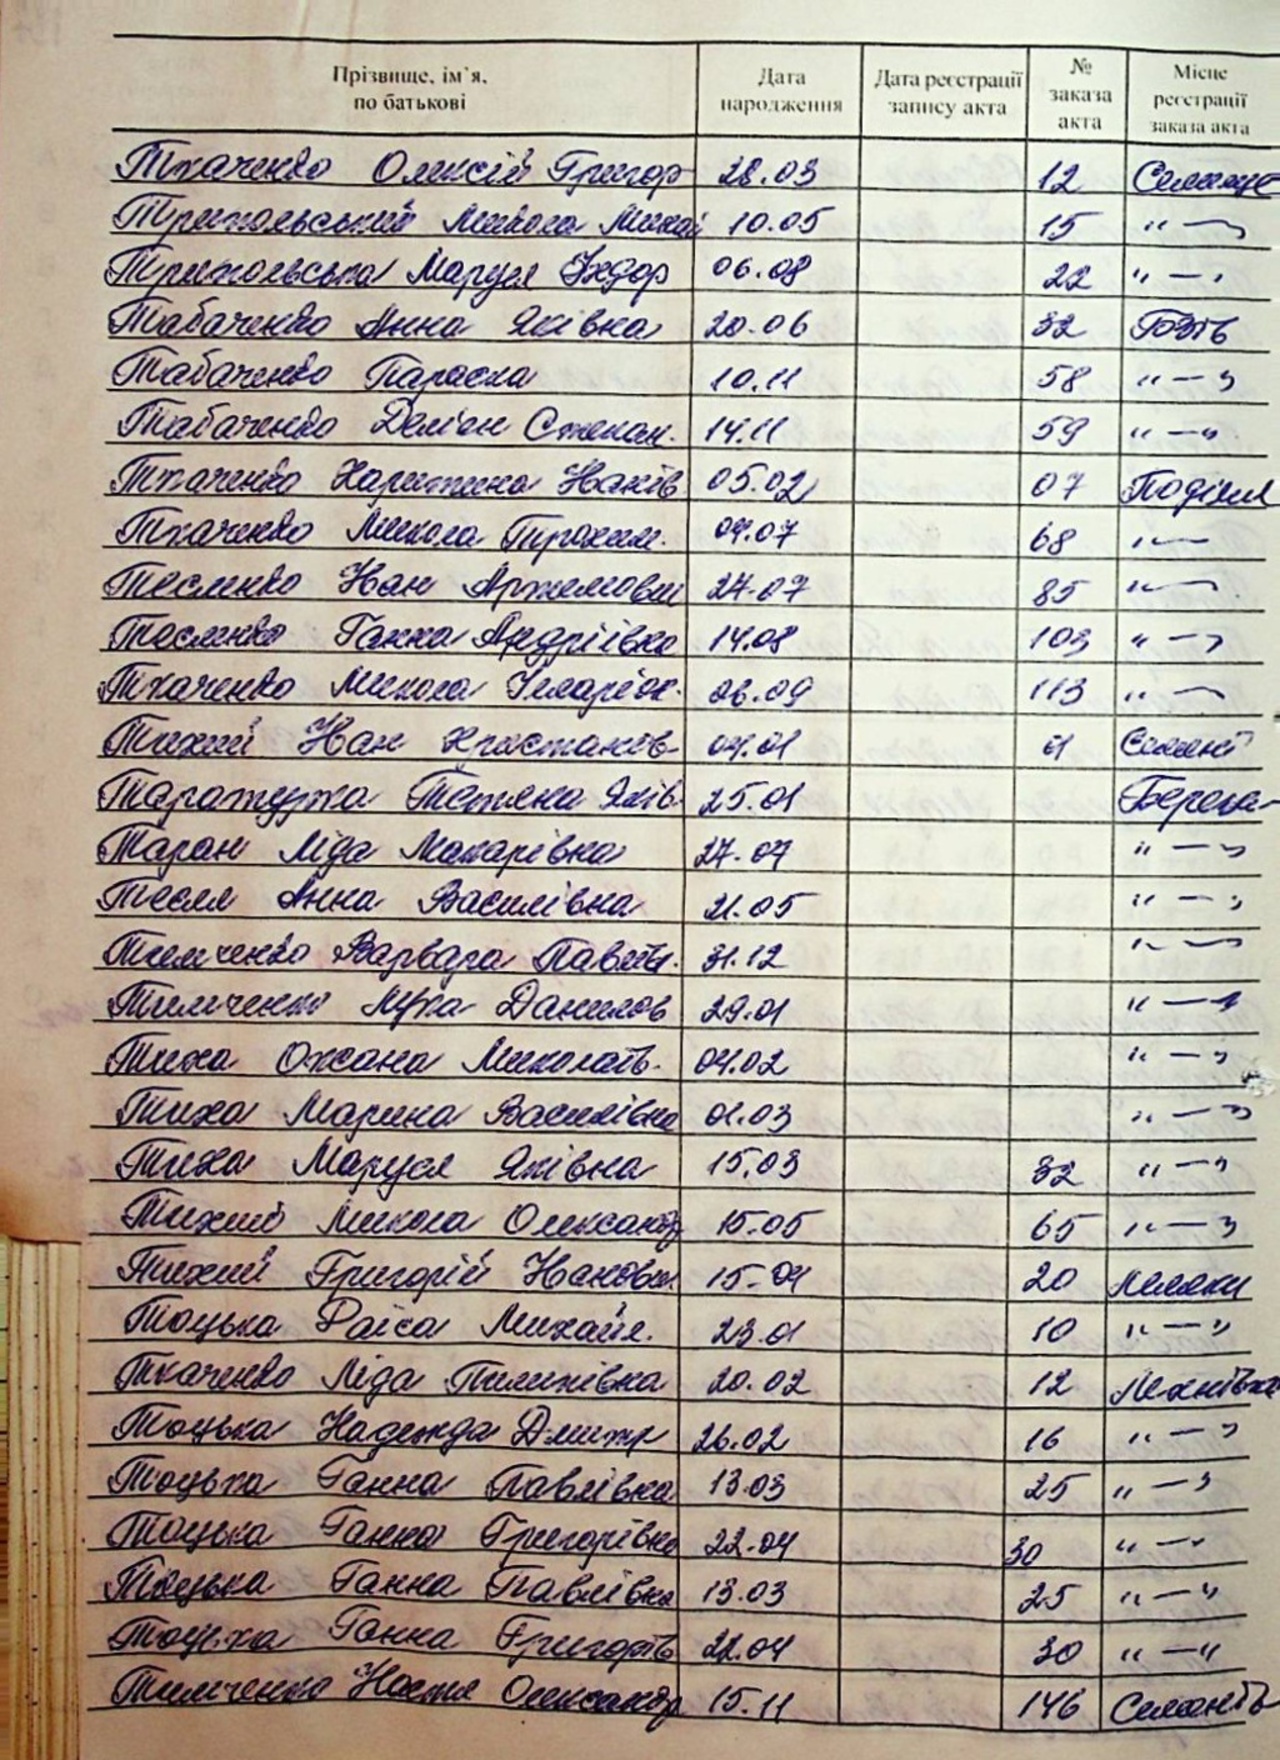 Прізвище, ім'я, по батькові Дата народження Дата реєстрації запису акта № заказа акта Місце реєстрації заказа акта
Ткаченко Олексій Григор 28.03 12
Трипольський Микола Михай 10.05 15 " —
Трипольська Маруся Федор 06.08 22 " —
Табаченко Анна Яківна 20.06 32 Гозів
Табаченко Параска 10.11 58 " — "
Табаченко Деміян Степан. 14.11 59 " — "
Ткаченко Харитина Іванів 05.02 07
Ткаченко Микола Трохим. 09.07 68 " —
Тесленко Іван Артемович 27.07 85 " —
Тесленко Ганна Андріївна 14.08 103 " — "
Ткаченко Микола Іларіон. 06.09 113 " —
Тихий Іван 04.01 01
Таратута Тетяна Яків 25.01
Таран Ліда Макарівна 27.07 " — "
Тесля Анна Василівна 21.05 " — "
Тимченко Варвара Павлів. 31.12 " — "
Тимченко Лука Данилов 29.01 " — "
Тиха Оксана Миколаїв. 04.02 " — "
Тиха Марина Василівна 01.03 " — "
Тиха Маруся Яківна 15.03 32 " — "
Тихий Микола Олександр 15.05 65 " — "
Тихий Григорій Іванович 15.04 20 Леляки
Тоцька Раїса Михайл. 23.01 10 " — "
Ткаченко Ліда Пилипівна 20.02 12 Лехнівка
Тоцька Надежда Дмитр 26.02 16 " — "
Тоцька Ганна Павлівна 13.03 25 " — "
Тоцька Ганна Григорівна 22.04 30 " — "
Тоцька Ганна Павлівна 13.03 25 " — "
Тоцька Ганна Григорів 22.04 30 " — "
Тимченко Настя Олександр 15.11 146